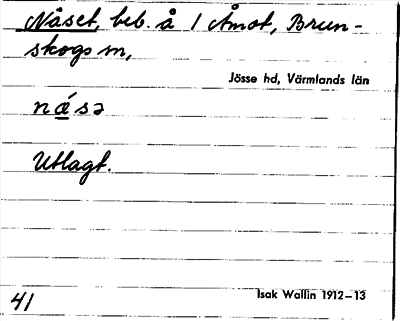 Näset, beb. å 1 Åmot, Brun-
skogs sn,
Jösse hd, Värmlands län
næ´sə
Utlagt.
41
Isak Wallin 1912–13